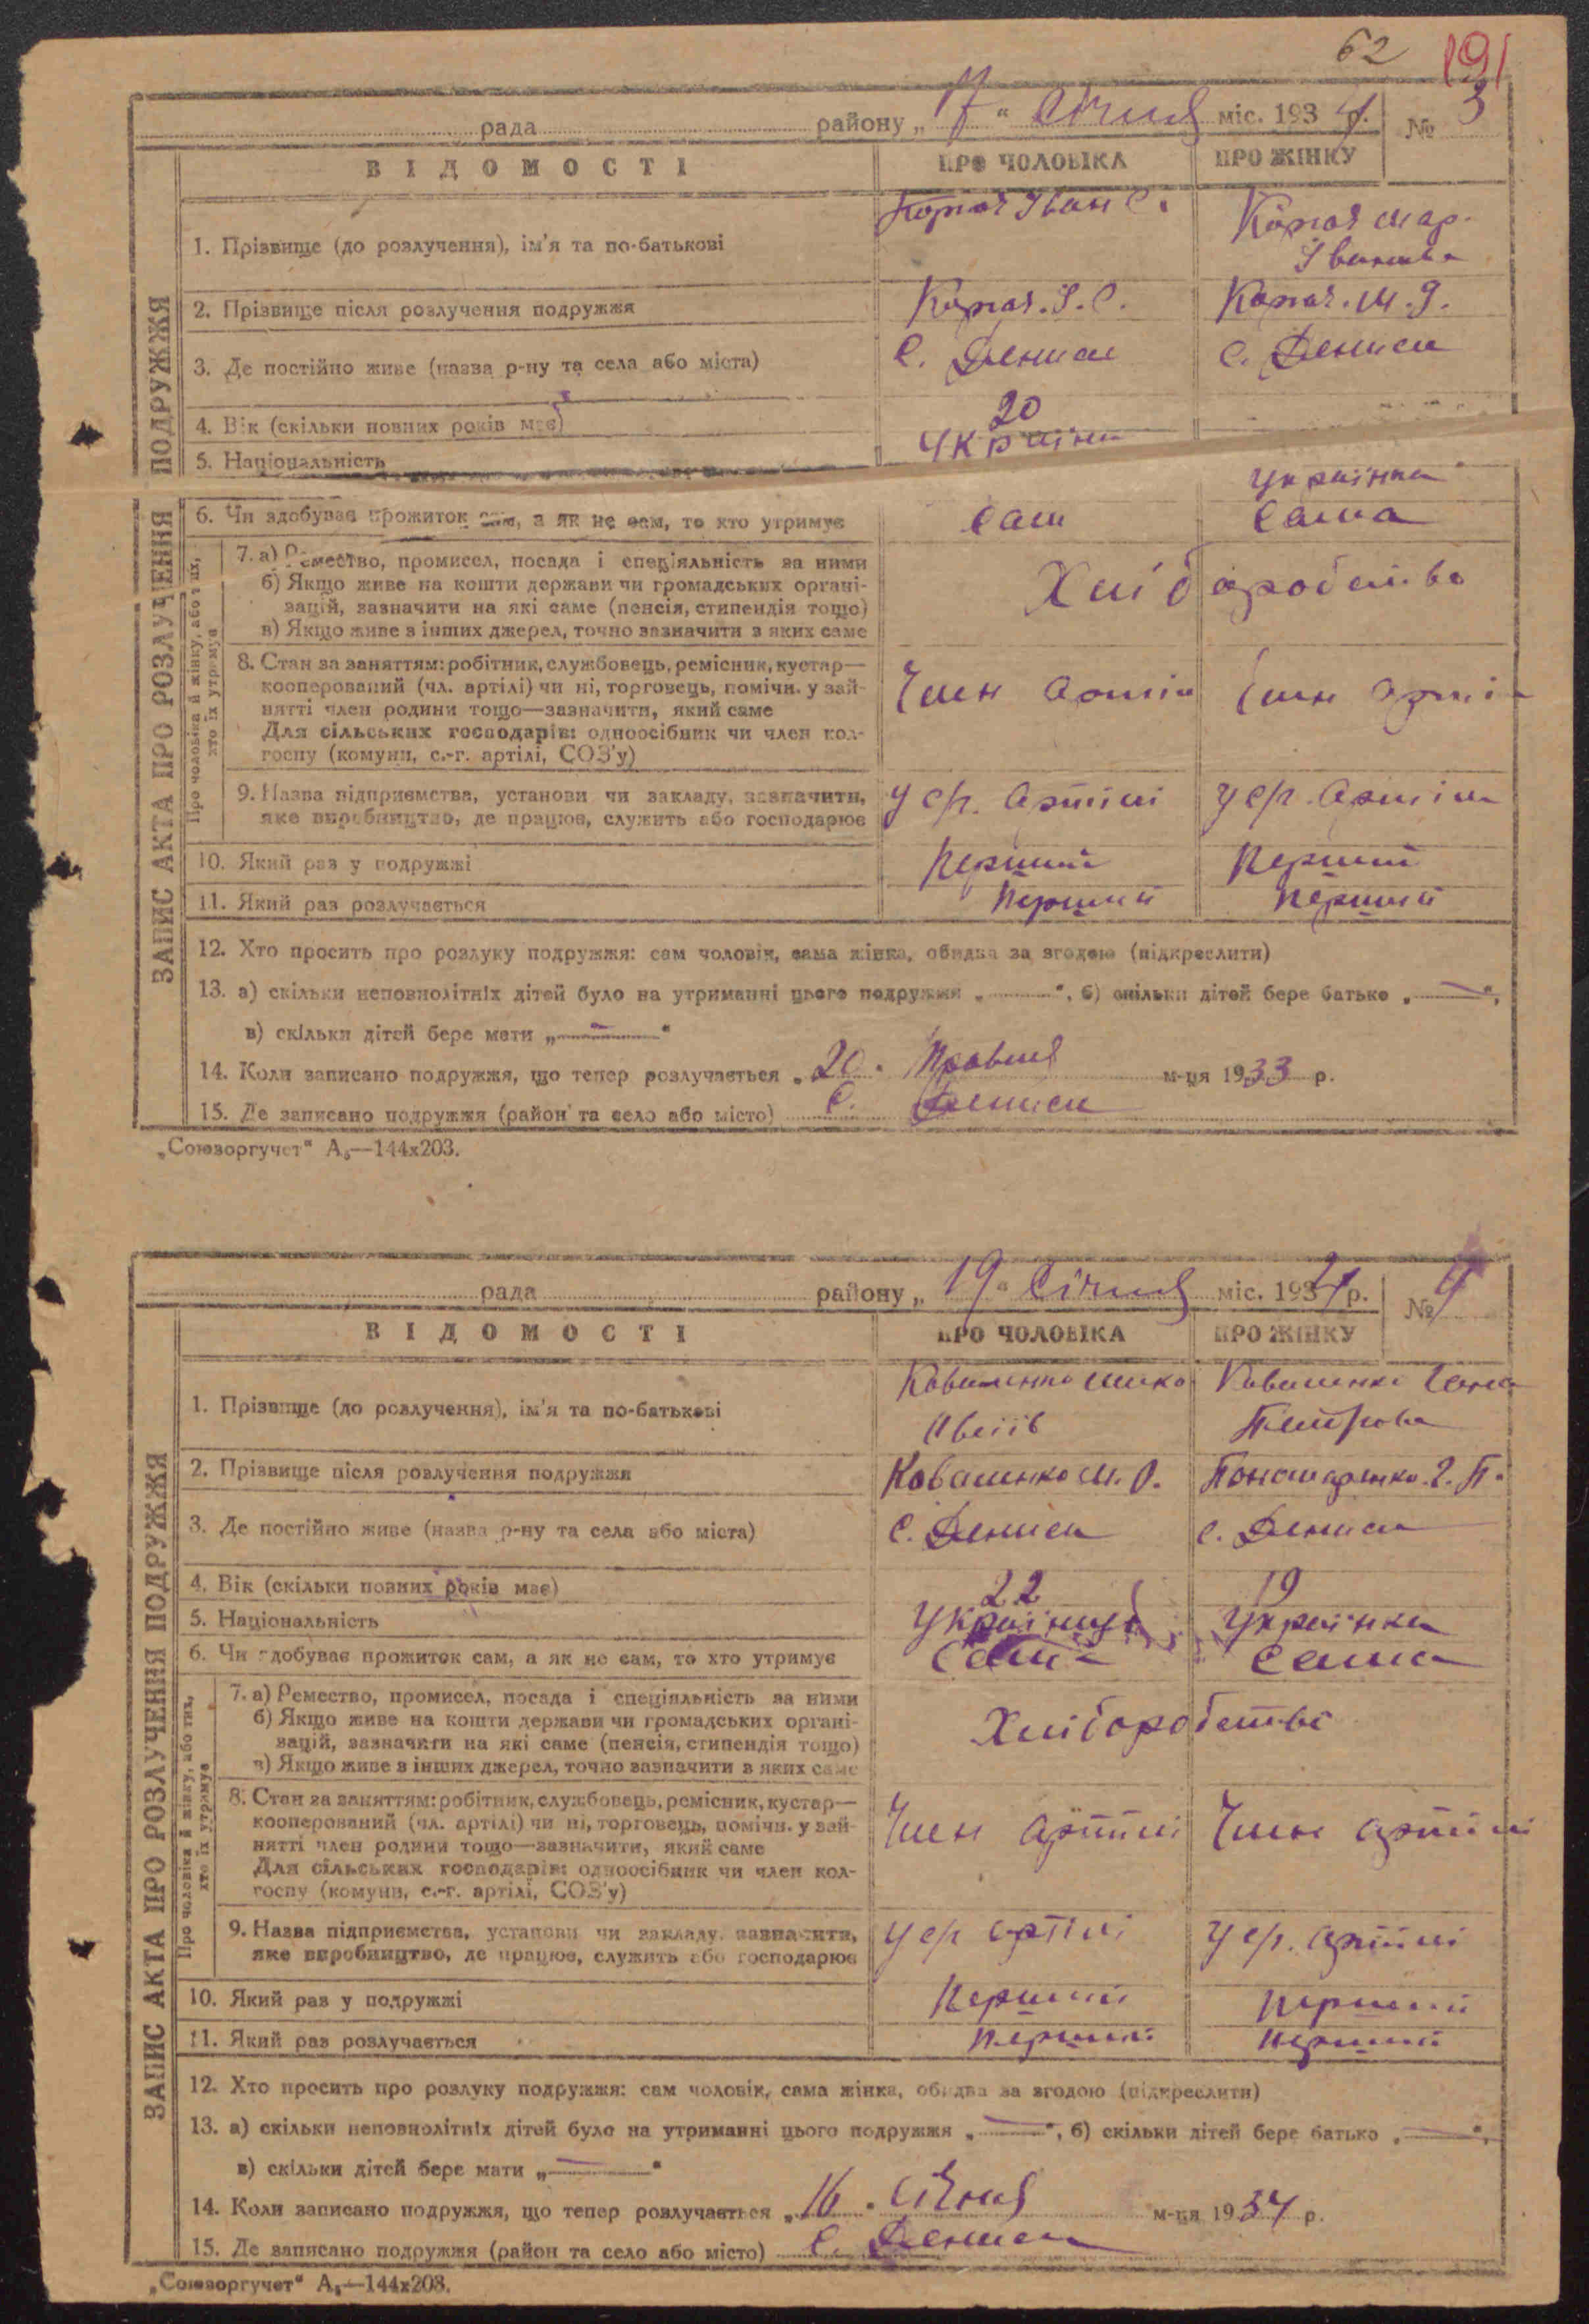 62 191
рада району „17“ Січня міс. 1934 р. № 3
ВІДОМОСТІ ПРО ЧОЛОВІКА ПРО ЖІНКУ
1. Прізвище (до розлучення), ім'я та по-батькові Копач Іван С. Копач Мар. Іванівна
2. Прізвище після розлучення подружжя Копач. І. С. Копач. М. І.
3. Де постійно живе (назва р-ну та села або міста) с. Дениси с. Дениси
4. Вік (скільки повних років має) 20
5. Національність Українка
6. Чи здобуває прожиток сам, а як не сам, то хто утримує сам сама
7. а) Ремество, промисел, посада і спеціяльність за ними
б) Якщо живе на кошти держави чи громадських органі-
зацій, зазначити на які саме (пенсія, стипендія тощо) Хліборобство
в) Якщо живе з інших джерел, точно зазначити з яких саме
8. Стан за заняттям: робітник, службовець, ремісник, кустар—
кооперований (чл. артілі) чи ні, торговець, помічн. у зай- Член артілі Член артілі
нятті член родини тощо—зазначити, який саме
Для сільських господарів: одноосібник чи член кол-
госпу (комуни, с.-г. артілі, СОЗ'у)
9. Назва підприємства, установи чи закладу, зазначити, у с/г. артілі у с/г. артілі
яке виробництво, де працює, служить або господарює
10. Який раз у подружжі Перший Перший
11. Який раз розлучається Перший Перший
12. Хто просить про розлуку подружжя: сам чоловік, сама жінка, обидва за згодою (підкреслити)
13. а) скільки неповнолітніх дітей було на утриманні цього подружжя „—“, б) скільки дітей бере батько „—“,
в) скільки дітей бере мати „—“
14. Коли записано подружжя, що тепер розлучається „20. м-ця 1933 р.
15. Де записано подружжя (район та село або місто) С. Дениси
ЗАПИС АКТА ПРО РОЗЛУЧЕННЯ ПОДРУЖЖЯ
Про чоловіка й жінку, або тих,
хто їх утримує
„Союзоргучет“ А₅—144х203.
рада району „19“ Січня міс. 1934 р. № 4
ВІДОМОСТІ ПРО ЧОЛОВІКА ПРО ЖІНКУ
1. Прізвище (до розлучення), ім'я та по-батькові Коваленко Коваленко Петрова
2. Прізвище після розлучення подружжя Коваленко М. О. Пономаренко. Г. П.
3. Де постійно живе (назва р-ну та села або міста) с. Дениси с. Дениси
4. Вік (скільки повних років має) 22 19
5. Національність Українець Українка
6. Чи здобуває прожиток сам, а як не сам, то хто утримує сам сама
7. а) Ремество, промисел, посада і спеціяльність за ними
б) Якщо живе на кошти держави чи громадських органі-
зацій, зазначити на які саме (пенсія, стипендія тощо) Хліборобство
в) Якщо живе з інших джерел, точно зазначити з яких саме
8. Стан за заняттям: робітник, службовець, ремісник, кустар—
кооперований (чл. артілі) чи ні, торговець, помічн. у зай- Член артілі Член артілі
нятті член родини тощо—зазначити, який саме
Для сільських господарів: одноосібник чи член кол-
госпу (комуни, с.-г. артілі, СОЗ'у)
9. Назва підприємства, установи чи закладу, зазначити, у с/г артілі у с/г. артілі
яке виробництво, де працює, служить або господарює
10. Який раз у подружжі Перший Перший
11. Який раз розлучається Перший Перший
12. Хто просить про розлуку подружжя: сам чоловік, сама жінка, обидва за згодою (підкреслити)
13. а) скільки неповнолітніх дітей було на утриманні цього подружжя „—“, б) скільки дітей бере батько „—“,
в) скільки дітей бере мати „—“
14. Коли записано подружжя, що тепер розлучається „16. Січня м-ця 1934 р.
15. Де записано подружжя (район та село або місто) С. Дениси
ЗАПИС АКТА ПРО РОЗЛУЧЕННЯ ПОДРУЖЖЯ
Про чоловіка й жінку, або тих,
хто їх утримує
„Союзоргучет“ А₅—144х203.